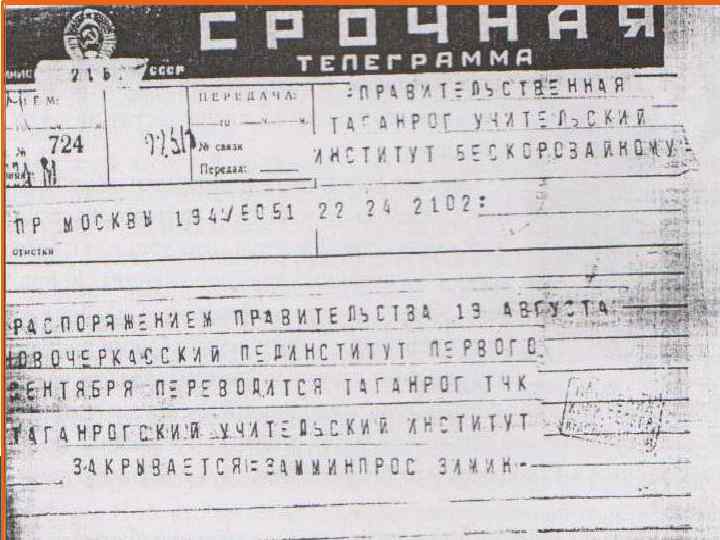 СРОЧНАЯ
ТЕЛЕГРАММА
СССР
ПЕРЕДАЧА:
724
№ связи
Передал:
=ПРАВИТЕЛЬСТВЕННАЯ
ТАГАНРОГ УЧИТЕЛЬСКИЙ
ИНСТИТУТ БЕСКОРОВАЙНОМУ
ПР МОСКВЫ 22 24 2102=
отметки
РАСПОРЯЖЕНИЕМ ПРАВИТЕЛЬСТВА 19 АВГУСТА
НОВОЧЕРКАССКИЙ ПЕДИНСТИТУТ ПЕРВОГО
СЕНТЯБРЯ ПЕРЕВОДИТСЯ ТАГАНРОГ ТЧК
ТАГАНРОГСКИЙ УЧИТЕЛЬСКИЙ ИНСТИТУТ
ЗАКРЫВАЕТСЯ=ЗАММИНПРОС ЗИМИН-